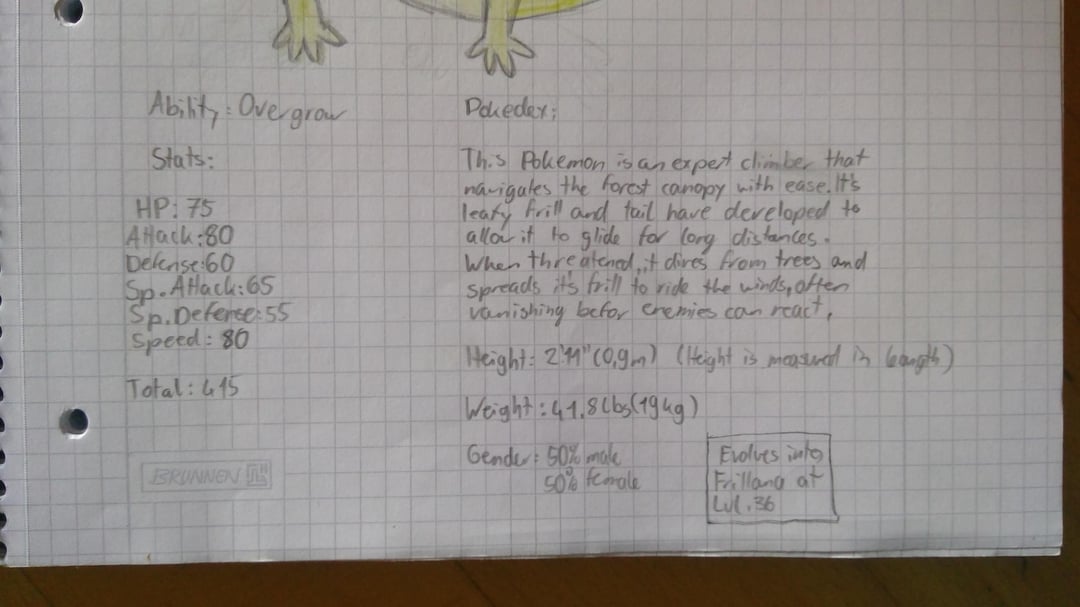 Ability: Overgrow
Stats:
HP: 75
Attack:80
Defense:60
Sp.Attack:65
Sp.Defense:55
Speed: 80
Total: 415
BRUNNEN
Pokedex:
This Pokemon is an expert climber that
navigates the forest canopy with ease. It's
leafy frill and tail have developed to
allow it to glide for long distances.
When threatened, it dives from trees and
spreads it's frill to ride the winds, often
vanishing befor enemies can react.
Height: 2'11" (0,9m) (Height is measured in leangth)
Weight: 41.8lbs(19kg)
Gender: 50% male
50% female
Evolves into
Frillana at
Lvl.36